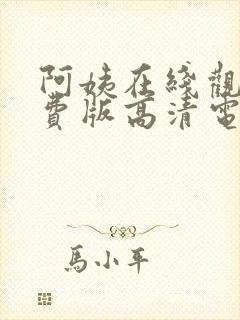 阿姨在綫觀
費版高清電
馬小平